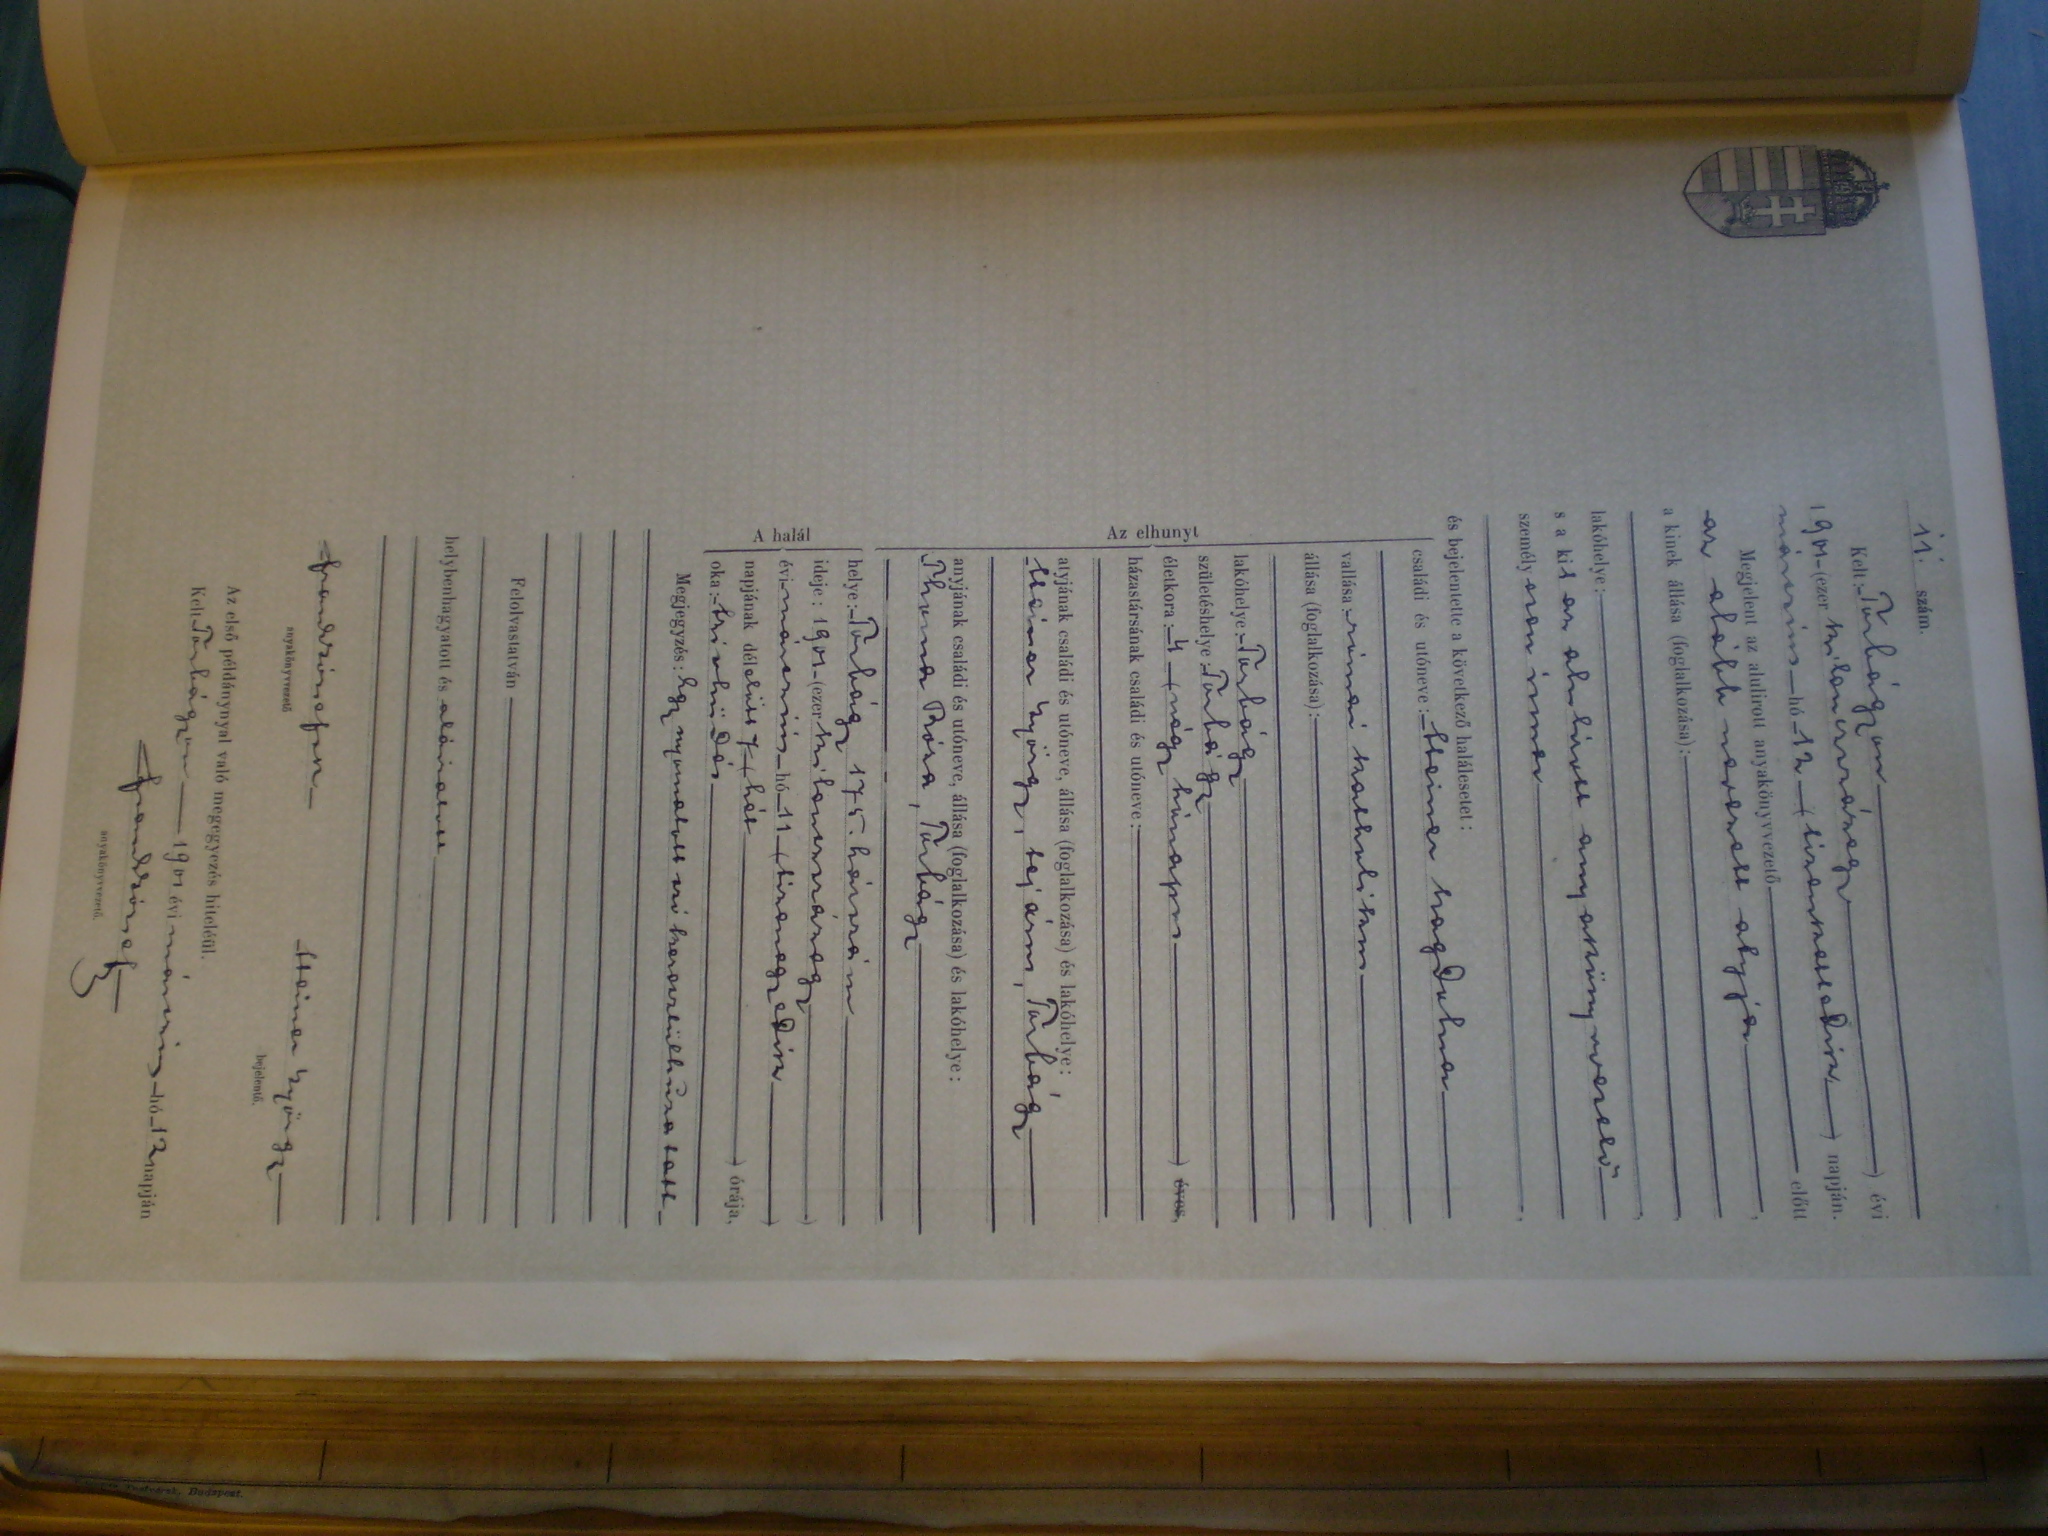 11. szám.
Kelt: Torbágyon ) évi
1901 (ezer kilenczszázegy
márczius hó 12 (tizenkettedik ) napján.
Megjelent az alulirott anyakönyvvezető előtt
az alább nevezett atyja ,
a kinek állása (foglalkozása): ,
lakóhelye: ,
s a kit az alulirott anyakönyvvezető
személyesen ismer ,
és bejelentette a következő halálesetet:
Az elhunyt
családi és utóneve: Steiner Magdolna
vallása: római katholikus
állása (foglalkozása):
lakóhelye: Torbágy
születéshelye: Torbágy
életkora: 4 (négy hónapos ) éves,
házastársának családi és utóneve:
atyjának családi és utóneve, állása (foglalkozása) és lakóhelye:
Steiner György, Torbágy
anyjának családi és utóneve, állása (foglalkozása) és lakóhelye:
Róza, Torbágy
A halál
helye: Torbágy 175. házszám
ideje: 1901 (ezer kilenczszázegy )
évi márczius hó 11 (tizenegyedik )
napjának délelőtt 7 (hét ) órája,
oka:
Megjegyzés: Egy nyomatott szó keresztülhúzatott
Felolvastatván
helybenhagyatott és aláíratott
anyakönyvvezető
Steiner György
bejelentő.
Az első példánynyal való megegyezés hiteléül.
Kelt: Torbágyon 1901 évi márczius hó 12 napján
anyakönyvvezető.
Budapest.